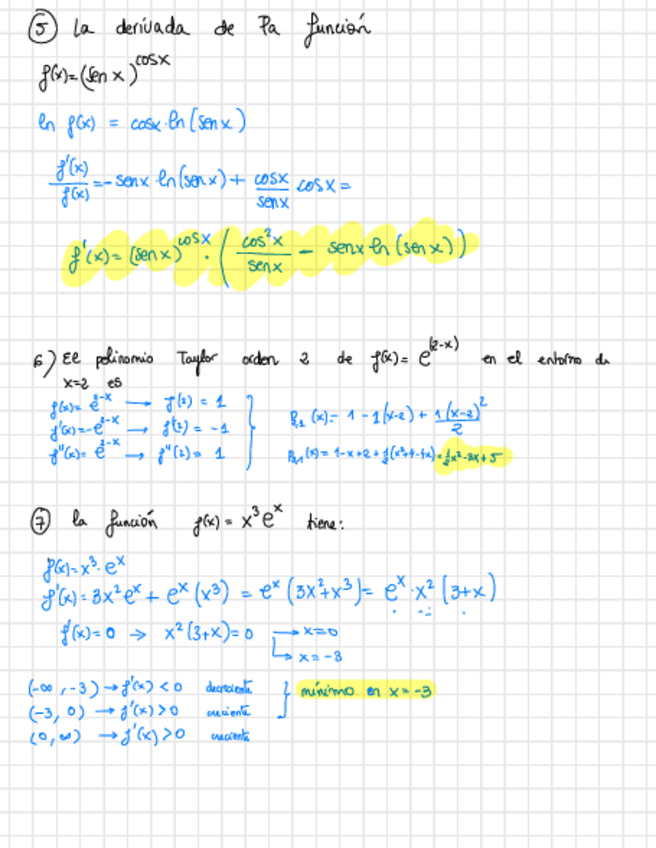 ⑤ La derivada de la función
f(x)=(sen x)^cosx
ln f(x) = cosx·ln(senx)
f'(x)/f(x) = -senx ln(senx) + cosx/senx cosx =
f'(x) = (senx)^cosx · (cos²x/senx - senx ln(senx))
6) El polinomio Taylor orden 2 de f(x) = e^(2-x) en el entorno de
x=2 es
f(x)= e^2-x → f(2) = 1
f'(x)=-e^2-x → f'(2) = -1
f''(x)= e^2-x → f''(2) = 1
(x)= 1 - 1(x-2) + 1(x-2)²/2
(x)= 1-x+2+½(x²+4-4x)=½x²-3x+5
⑦ la función f(x) = x³e^x tiene:
f(x)=x³·e^x
f'(x)=3x²e^x + e^x(x³) = e^x(3x²+x³)= e^x·x²(3+x)
f'(x)=0 → x²(3+x)=0 → x=0
↳ x=-3
(-∞,-3) → f'(x)<0 decreciente } mínimo en x=-3
(-3, 0) → f'(x)>0 creciente
(0, ∞) → f'(x)>0 creciente